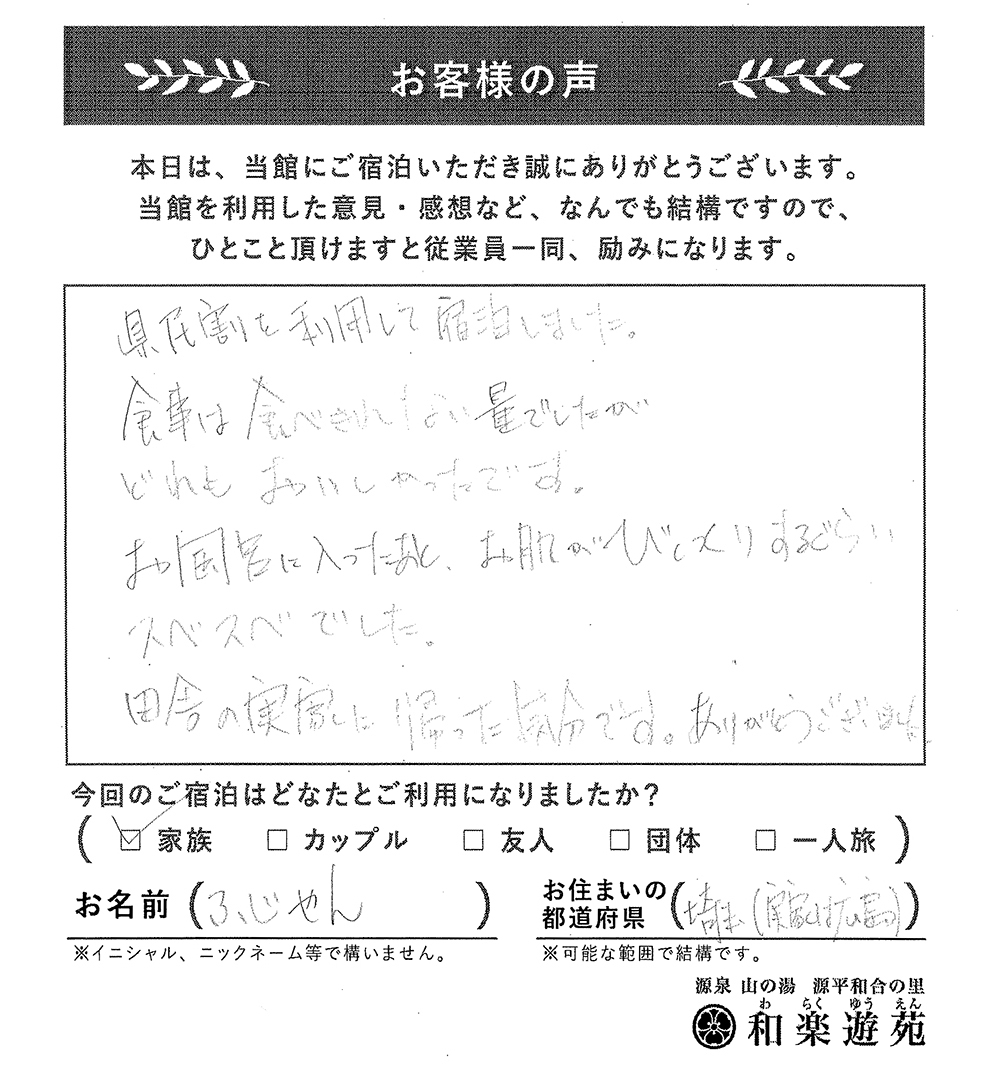 お客様の声
本日は、当館にご宿泊いただき誠にありがとうございます。
当館を利用した意見・感想など、なんでも結構ですので、
ひとこと頂けますと従業員一同、励みになります。
県民割を利用して宿泊しました。
食事は食べきれない量でしたが
どれもおいしかったです。
お風呂に入ったあと、お肌がびっくりするぐらい
スベスベでした。
田舎の実家に帰った気分です。ありがとうございました
今回のご宿泊はどなたとご利用になりましたか?
( ☑ 家族 □ カップル □ 友人 □ 団体 □ 一人旅 )
お名前 (ふじやん) お住まいの都道府県 (埼玉(実家は広島))
※イニシャル、ニックネーム等で構いません。 ※可能な範囲で結構です。
源泉 山の湯 源平和合の里
わ らく ゆう えん
和楽遊苑